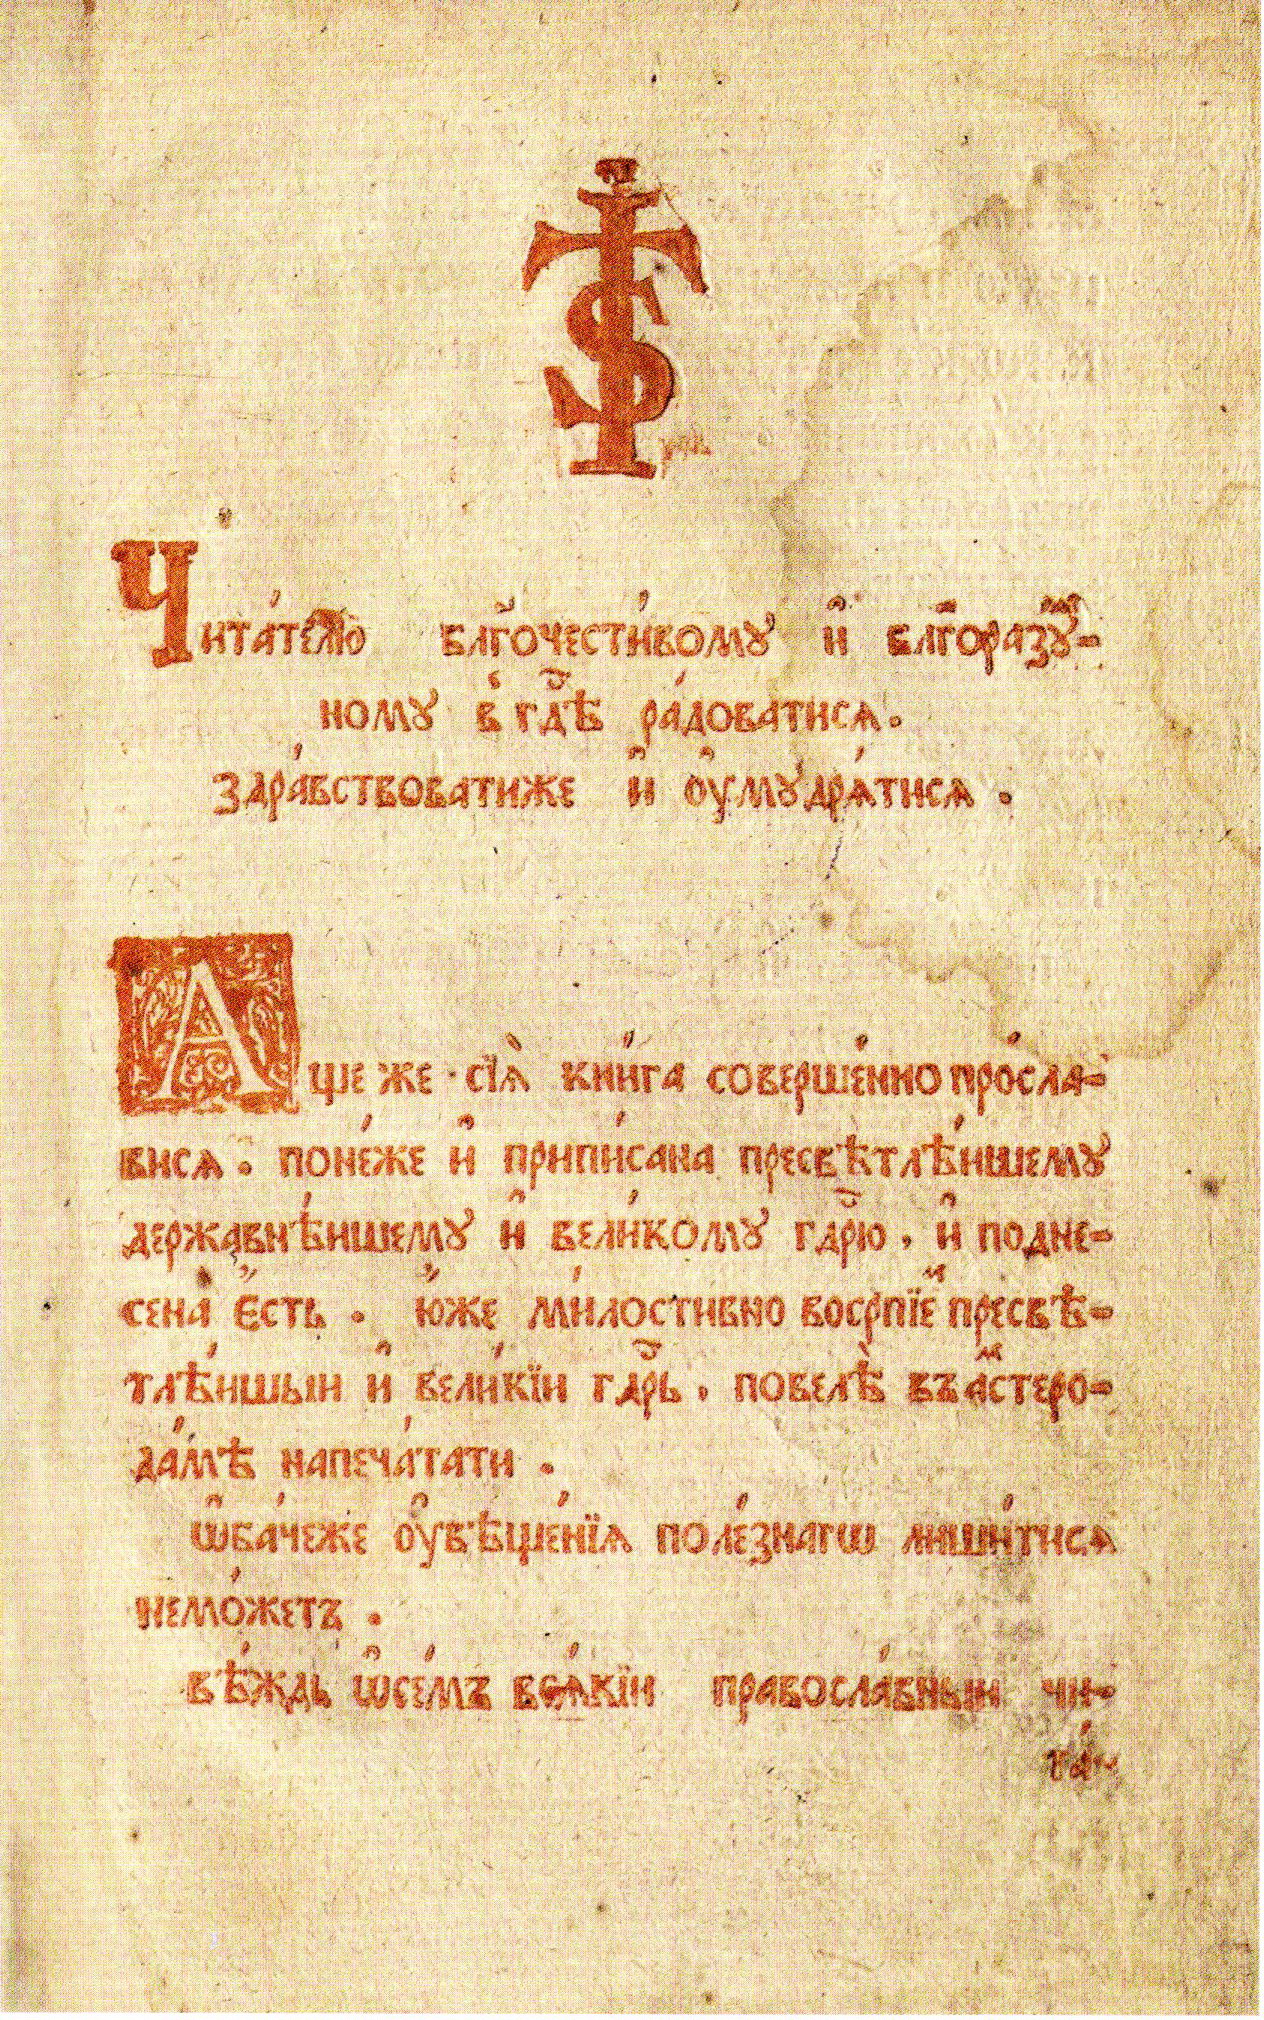 Чита́телю бл҃гочести́вому и҆ бл҃горазꙋ́-
номꙋ в҆ гдⷭ҇ѣ ра́доватисѧ.
здра́вствоватиже и҆ ᲂу҆мꙋдрѧ́тисѧ .
Аще же сїѧ̀ кни́га соверше́нно про́сла-
висѧ. поне́же и҆ припи́сана пресвѣтлѣ́ишемꙋ
державнѣ́ишемꙋ и҆ вели́комꙋ гдⷭ҇рю , и҆ подне-
сена̀ є҆́сть . ю҆́же ми́лостивно восрпїеⷨ пресвѣ-
тлѣ́ишыи и҆ вели́кїи гдⷭ҇рь , повелѣ̀ въ аⷨстеро-
да́мѣ напеча́тати .
ѡ҆ба́чеже ᲂу҆вѣще́нїѧ поле́знагѡ лиши́тисѧ
немо́жетъ .
вѣ́ждь ѡ҆се́мъ всѧ́кїи правосла́вныи чи-
та́-